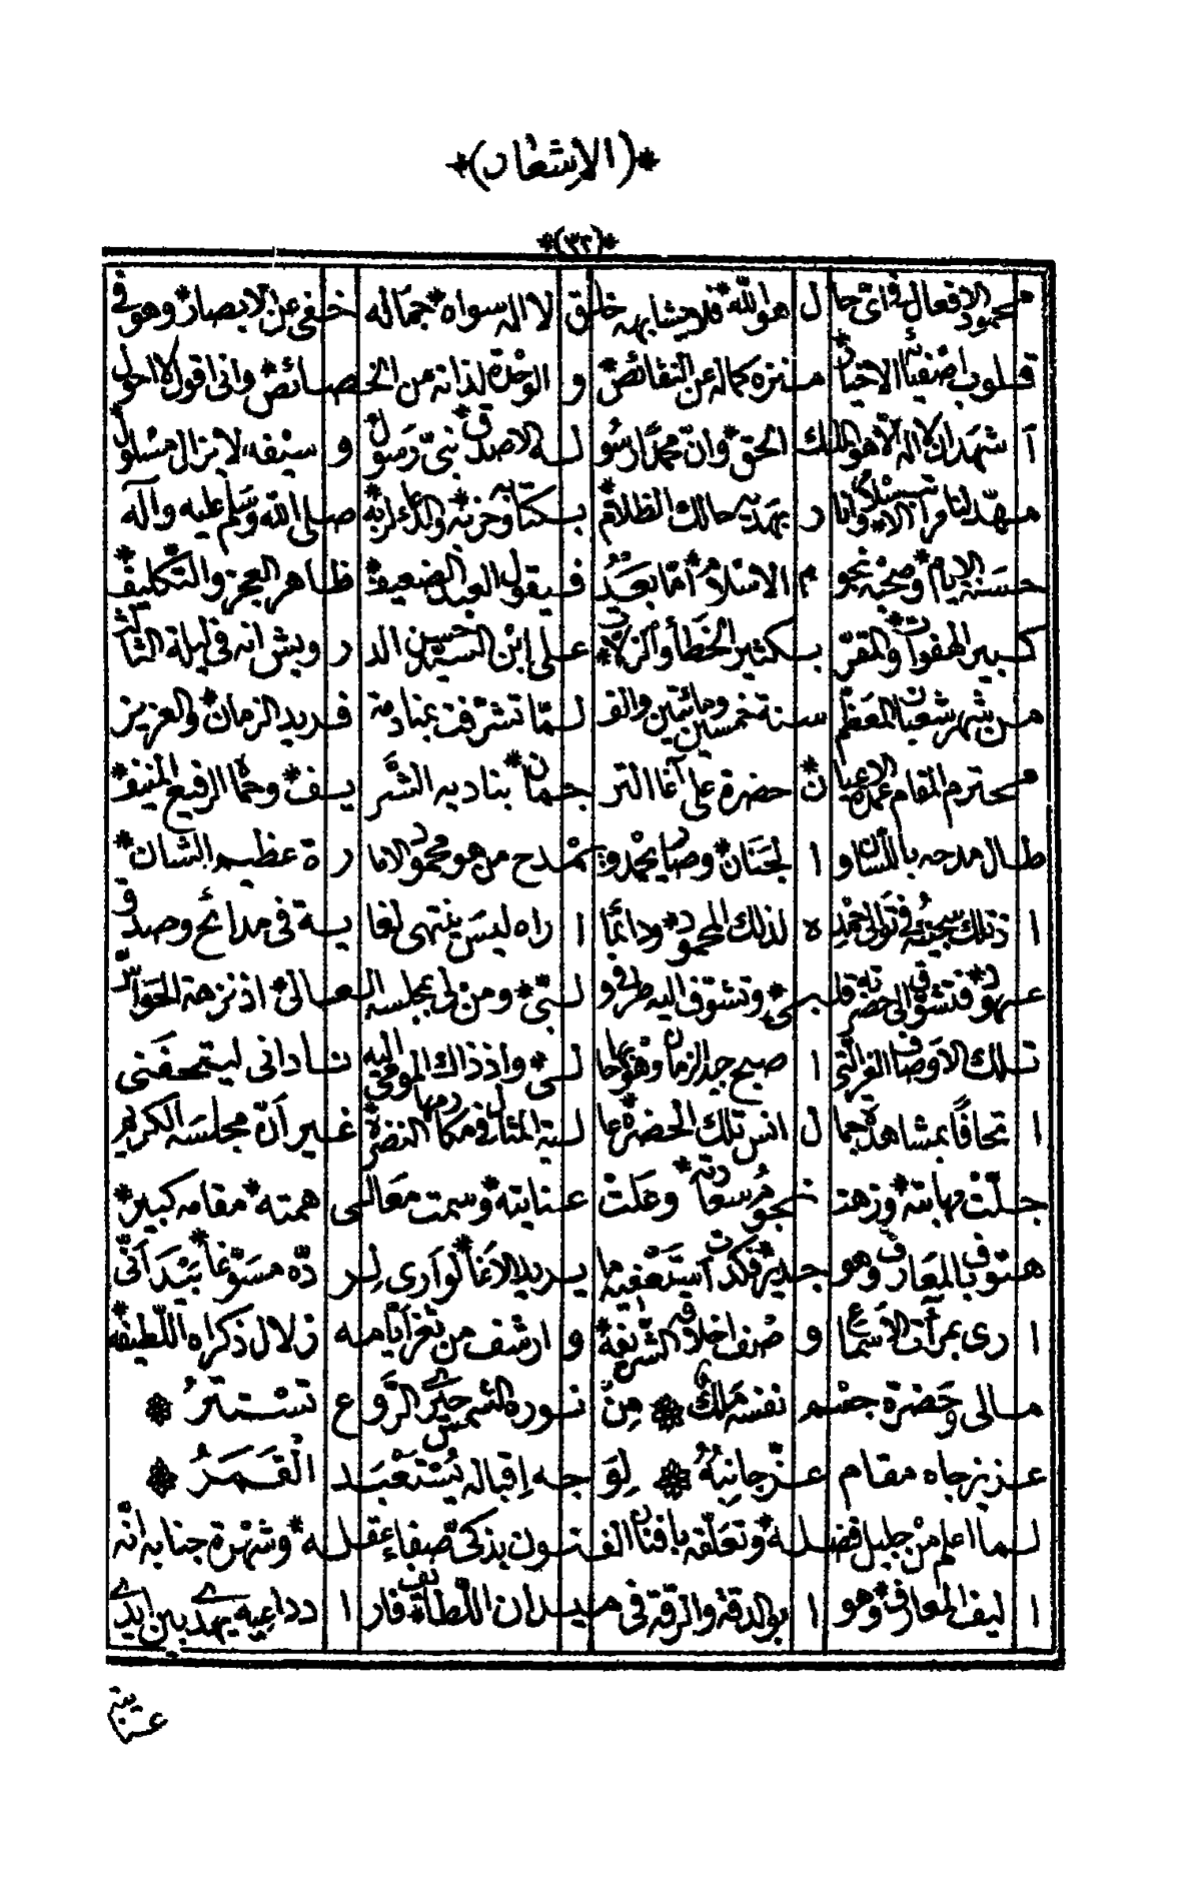 *(الأشعار)*
*(٣٢)*
محمود الافعال في اىّ حال هو الله * فلا يشابهه خلق لا اله سواه * جماله خفى عن الابصار * وهو في
قلوب اصفيائه الاخيار * منزه كماله عن النقائص * والوحدة لذاته من الخصائص * وانى اقول لا احول
أشهد ان لا اله الا هو الملك الحق * وانّ محمدا رسوله الاصدق * نبىّ رسول * وسيفه لا يزال مسلول *
مهّد لنا وانار بهديه حالك الظلام * بكتابه وحزبه * صلى الله وسلم عليه وآله
حسنة الايام * وصحبه نجوم الاسلام * أمّا بعد فيقول العبد الضعيف * ظاهر العجز والتكليف *
كبير الهفوات * والمقرّ بكثير الخطأ والزلات * على ابن السيد حسن الدرويش انه في ليلة الثالث
من شهر شعبان المعظم سنة خمسين ومائتين والف لمّا تشرّفت بمنادمة فريد الزمان * والعزيز
محترم المقام عمدة الاعيان * حضرة على آغا الترجمان * بناديه الشّريف * وحماه الرفيع المنيف *
طال مدحه باللسان والجنان * وصار يحمد ويمدح من هو محمود الامارة عظيم الشان *
اذ ذلك سجيته في توالى حمده لذلك المحمود * ودائما اراه ليس ينتهى لغاية في مدائح وصدق
عهود * فتشوّق الى حضرته قلبى * وتشوّف اليه طرفى ولبّى * ومن لى بمجلسه العالى * اذ نزهة الحواسّ
تلك الاوصاف الغر التى اصبح جيد الزمان وهو بها حالى * واذ ذاك الموفق اليه نادانى ليتحفنى
اتحافا بمشاهدة جمال انس تلك الحضرة * عالية المثال في مكارمها النضرة * غير أنّ مجلسه الكريم
جلّت مهابته * وزهت نحو مسعاه رتبته * وعلت عنايته * وسمت معالى همته * مقامه كبير *
هتوف بالمعارف وهو جدير * فكدت أستعفيه ما يريد الاغا * لو ارى لردّه مسوّغا * بيد أنّى
ارى بمرآت الاسماع وصنف اخلاقه الشريفة * وارشف من ثغر أيّامه زلال ذكراه اللّطيفة *
مالى وحضرة جسم نفسه ملك * مِنْ نوره الشمس حيرى الرَّوع تَسْتترُ *
عزيز جاه مقام عزّ جانبُهُ * لِوَجه اِقباله يُسْتَعْبَد الْقَمَرُ *
لما اعلم من جليل فضله * وتعلّقه بافنان الفنون بذكىّ صفاء عقله * وشهرة جنابه انّه
اليف المعارف * وهو ابو الدقة والرقة في ميدان اللّطائف * فاراد داعيه يهدى بين ايدى
عزيته